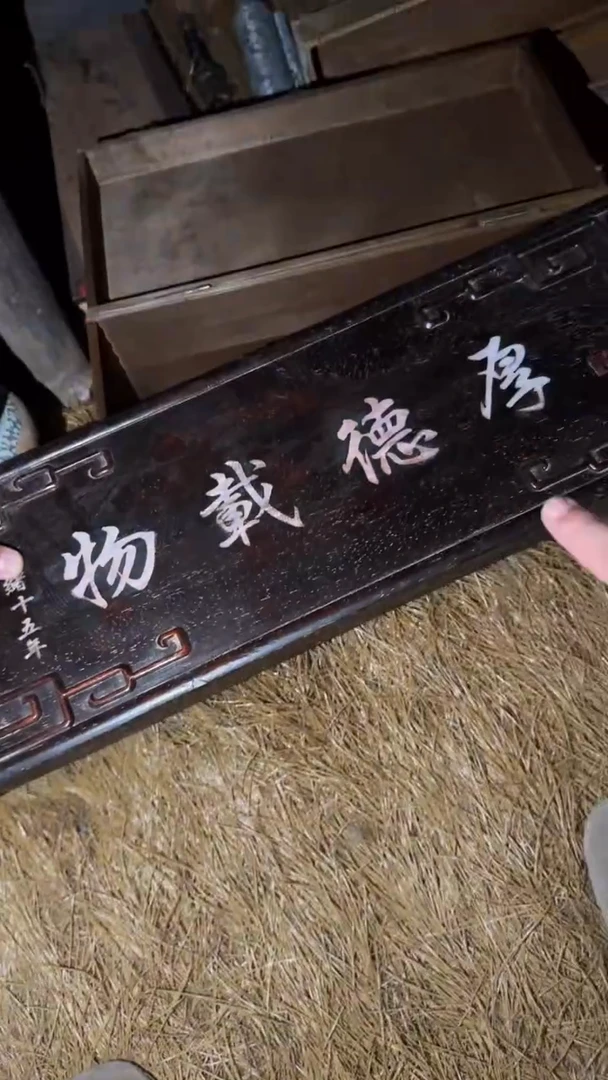 厚德載物
緒十五年